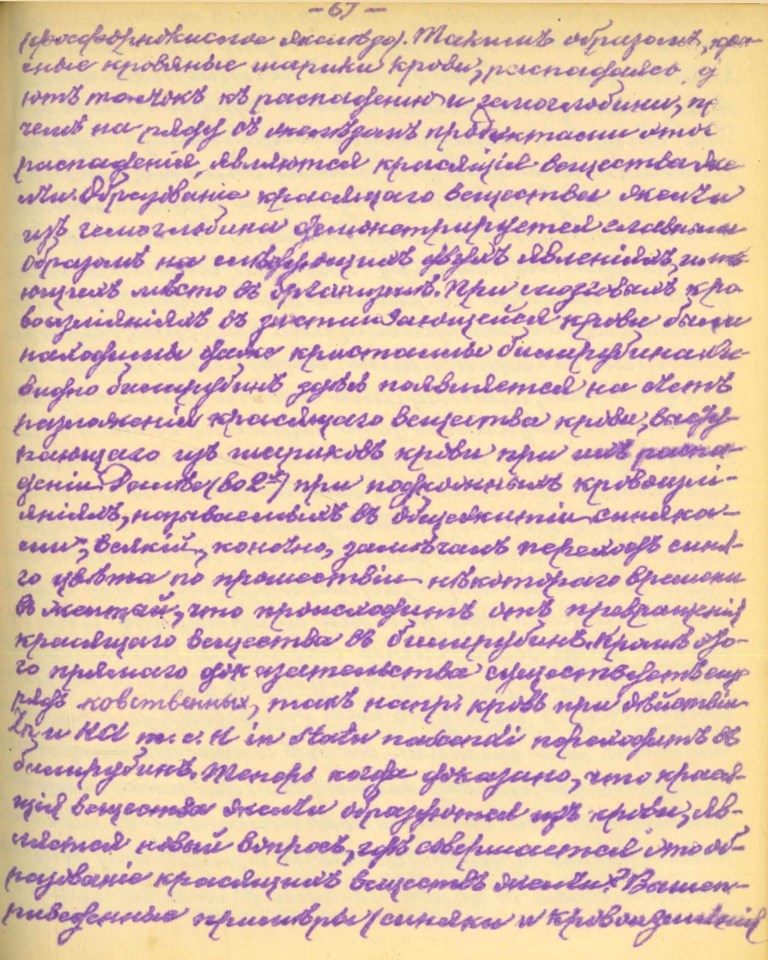 – 67 –
(фосфорнокислое железо). Такимъ образомъ, кра-
сные кровяные шарики крови, распадаясь, д
ютъ толчокъ къ распаденію и гемоглобина, п
чемъ на ряду съ железомъ продуктами этог
распаденія, являются красящія вещества же-
лчи. Образованіе красящаго вещества желчи
изъ гемоглобина демонстрируется главнымъ
образомъ на слѣдующихъ двухъ явленіяхъ, имѣ-
ющихъ мѣсто въ организмѣ. При мозговыхъ кро-
воизліяніяхъ въ застаивающейся крови были
находимы даже кристаллы билирубина. Оче-
видно билирубинъ здѣсь появляется на счетъ
разложенія красящаго вещества крови, высту-
пающаго изъ шариковъ крови при ихъ распа-
деніи. Далѣе (во 2-хъ) при подкожныхъ кровоизлі-
яніяхъ, называемыхъ въ общежитіи „синяка-
ми“, всякій, конечно, замѣчалъ переходъ сине-
го цвѣта по прошествіи нѣкотораго времени
въ желтый, что происходитъ отъ превращенія
красящаго вещества въ билирубинъ. Кромѣ это-
го прямого доказательства существуетъ еще
рядъ косвенныхъ, такъ напр. кровь при дѣйствіи
Zn и HCl т. е. H in statu nascendi переходитъ въ
билирубинъ. Теперь когда доказано, что крася-
щія вещества желчи образуются изъ крови, яв-
ляется новый вопросъ, гдѣ совершается это об-
разованіе красящихъ веществъ желчи? Вышеп-
риведенные примѣры (синяки и кровоизліянія